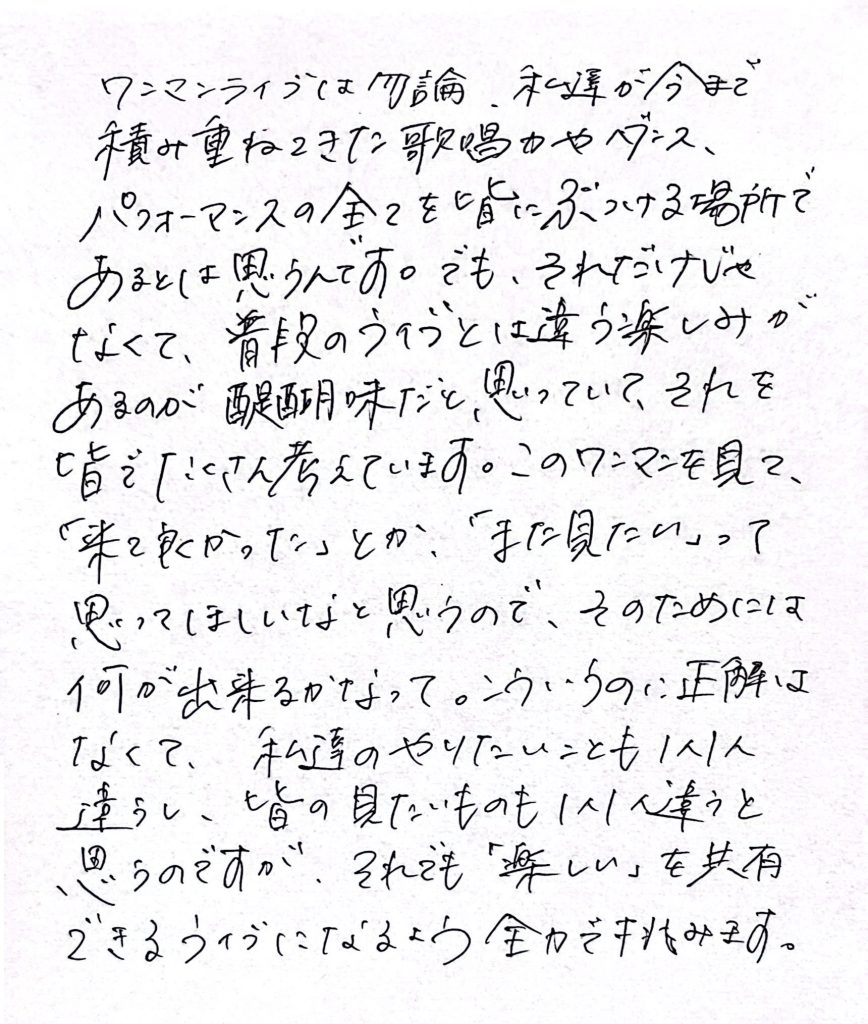 ワンマンライブは勿論、私達が今まで
積み重ねてきた歌唱力やダンス、
パフォーマンスの全てを皆にぶつける場所で
あるとは思うんです。でも、それだけじゃ
なくて、普段のライブとは違う楽しみが
あるのが醍醐味だと思っていて、それを
皆でたくさん考えています。このワンマンを見て、
「来て良かった」とか、「また見たい」って
思ってほしいなと思うので、そのためには
何が出来るかなって。こういうのに正解は
なくて、私達のやりたいことも1人1人
違うし、皆の見たいものも1人1人違うと
思うのですが、それでも「楽しい」を共有
できるライブになるよう全力で挑みます。